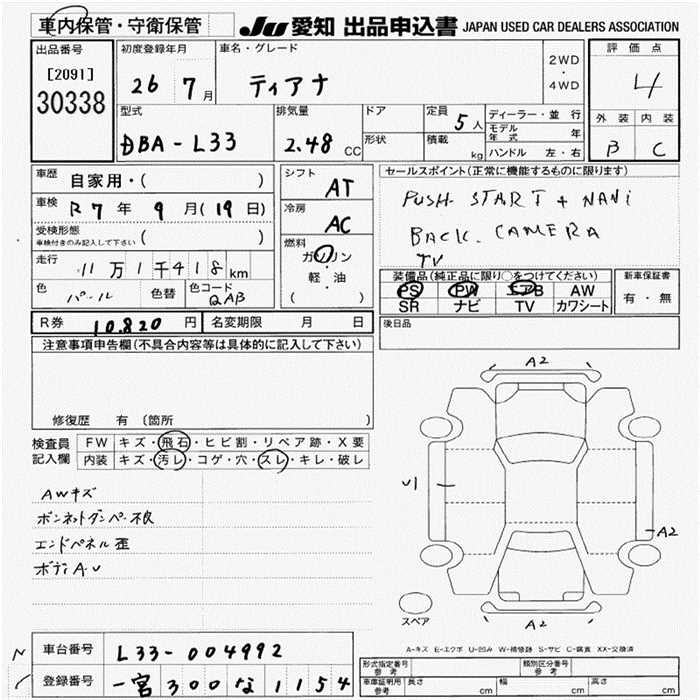 車内保管・守衛保管
JU 愛知 出品申込書 JAPAN USED CAR DEALERS ASSOCIATION
出品番号
[2091]
30338
初度登録年月
26 7月
車名・グレード
ティアナ
2WD
・
4WD
評価点
4
外装 内装
B C
型式
DBA-L33
排気量
2.48 CC
ドア
形状
定員
5人
積載
kg
ディーラー・並行
モデル年式 年
ハンドル 左・右
車歴
自家用・( )
車検 R7年9月(19日)
受検形態
車検付きのみ記入して下さい ( )
走行
11万1千418km
色
パール
色替
色コード
QAB
シフト
AT
冷房
AC
燃料
ガソリン
・
軽・油
( )
セールスポイント(正常に機能するものに限ります)
PUSH START + NAVi
BACK. CAMERA
TV
装備品(純正品に限り○をつけてください)
PS PW エアB AW
SR ナビ TV カワシート
新車保証書
有・無
R券 10.820円 名変期限 月 日
後日品
注意事項申告欄(不具合内容等は具体的に記入して下さい)
修復歴 有 〔箇所 〕
検査員
記入欄
FW キズ・飛石・ヒビ割・リペア跡・X要
内装 キズ・汚レ・コゲ・穴・スレ・キレ・破レ
AWキズ
ボンネットダンパー不良
エンドパネル歪
ボディA.U
A2
U1
A2
A2
スペア
A-キズ E-エクボ U-凹み W-補修跡 S-サビ C-腐食 XX-交換済
N
車台番号 L33-004992
登録番号 一宮300な1154
形式指定番号
参考
類別区分番号
参考
車庫証明用
参考
長さ cm 幅 cm 高さ cm